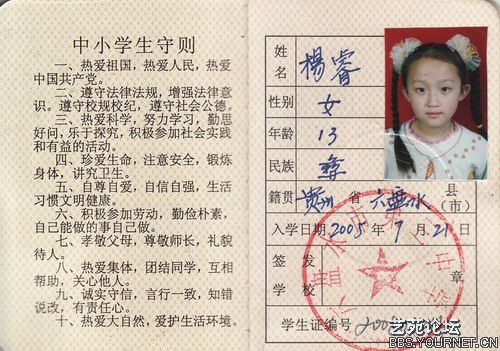 中小学生守则
一、热爱祖国，热爱人民，热爱
中国共产党。
二、遵守法律法规，增强法律意
识。遵守校规校纪，遵守社会公德。
三、热爱科学，努力学习，勤思
好问，乐于探究，积极参加社会实践
和有益的活动。
四、珍爱生命，注意安全，锻炼
身体，讲究卫生。
五、自尊自爱，自信自强，生活
习惯文明健康。
六、积极参加劳动，勤俭朴素，
自己能做的事自己做。
七、孝敬父母，尊敬师长，礼貌
待人。
八、热爱集体，团结同学，互相
帮助，关心他人。
九、诚实守信，言行一致，知错
说改，有责任心。
十、热爱大自然，爱护生活环境。
姓名 楊睿
性别 女
年龄 13
民族 彝
籍贯 贵州 省 六盘水 县（市）
入学日期 2005 年 9 月 21 日
签发学校 章
学生证编号
艺苑论坛
BBS.YOURNET.CN